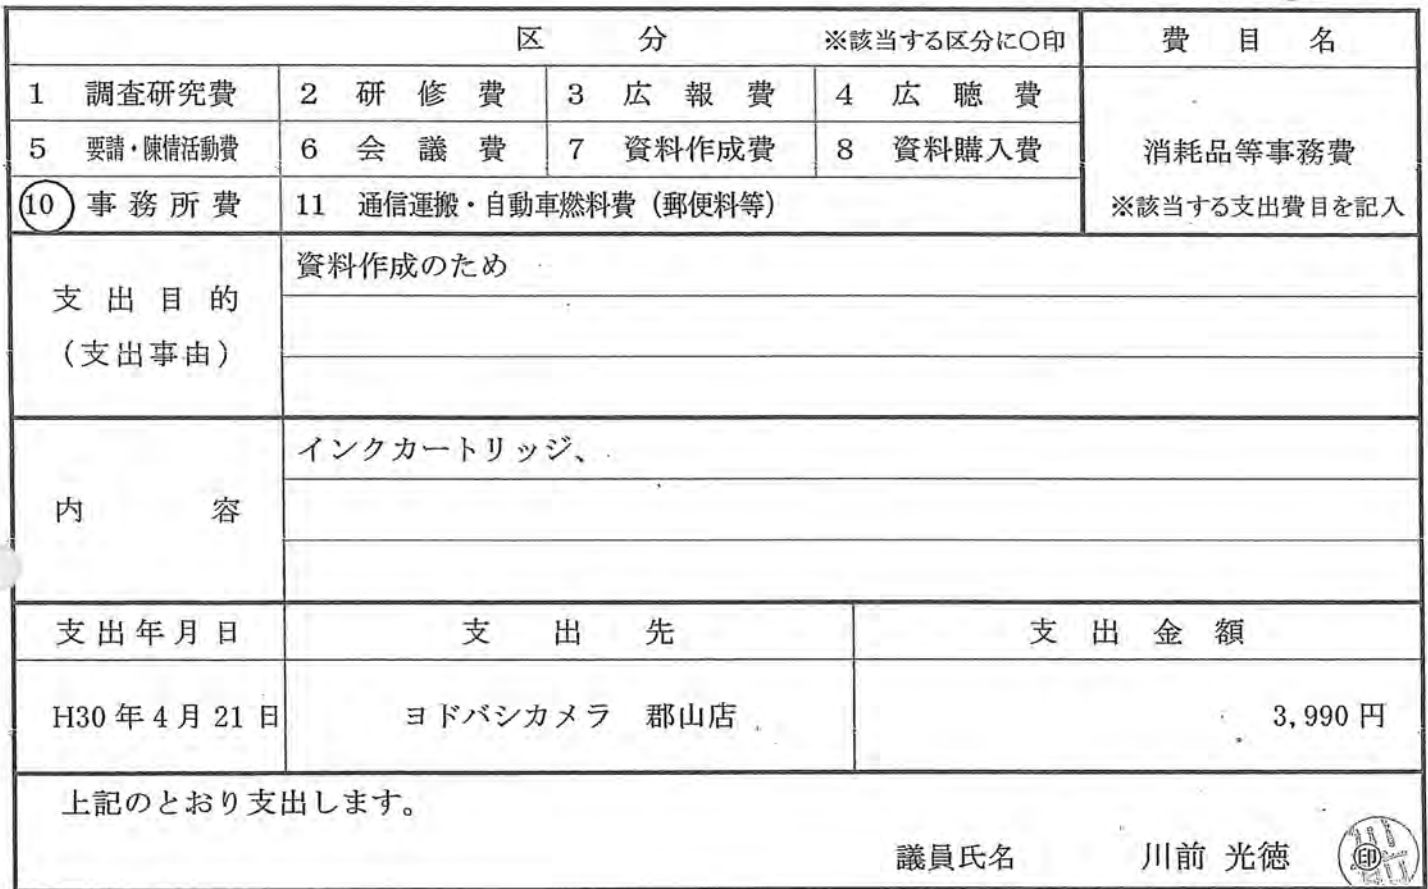 区 分 ※該当する区分に○印 費 目 名
1 調査研究費 2 研 修 費 3 広 報 費 4 広 聴 費
5 要請・陳情活動費 6 会 議 費 7 資料作成費 8 資料購入費 消耗品等事務費
10 事 務 所 費 11 通信運搬・自動車燃料費(郵便料等) ※該当する支出費目を記入
支 出 目 的
(支出事由)
資料作成のため
内 容
インクカートリッジ、
支出年月日 支 出 先 支 出 金 額
H30年4月21日 ヨドバシカメラ 郡山店 3,990円
上記のとおり支出します。
議員氏名 川前 光徳 印